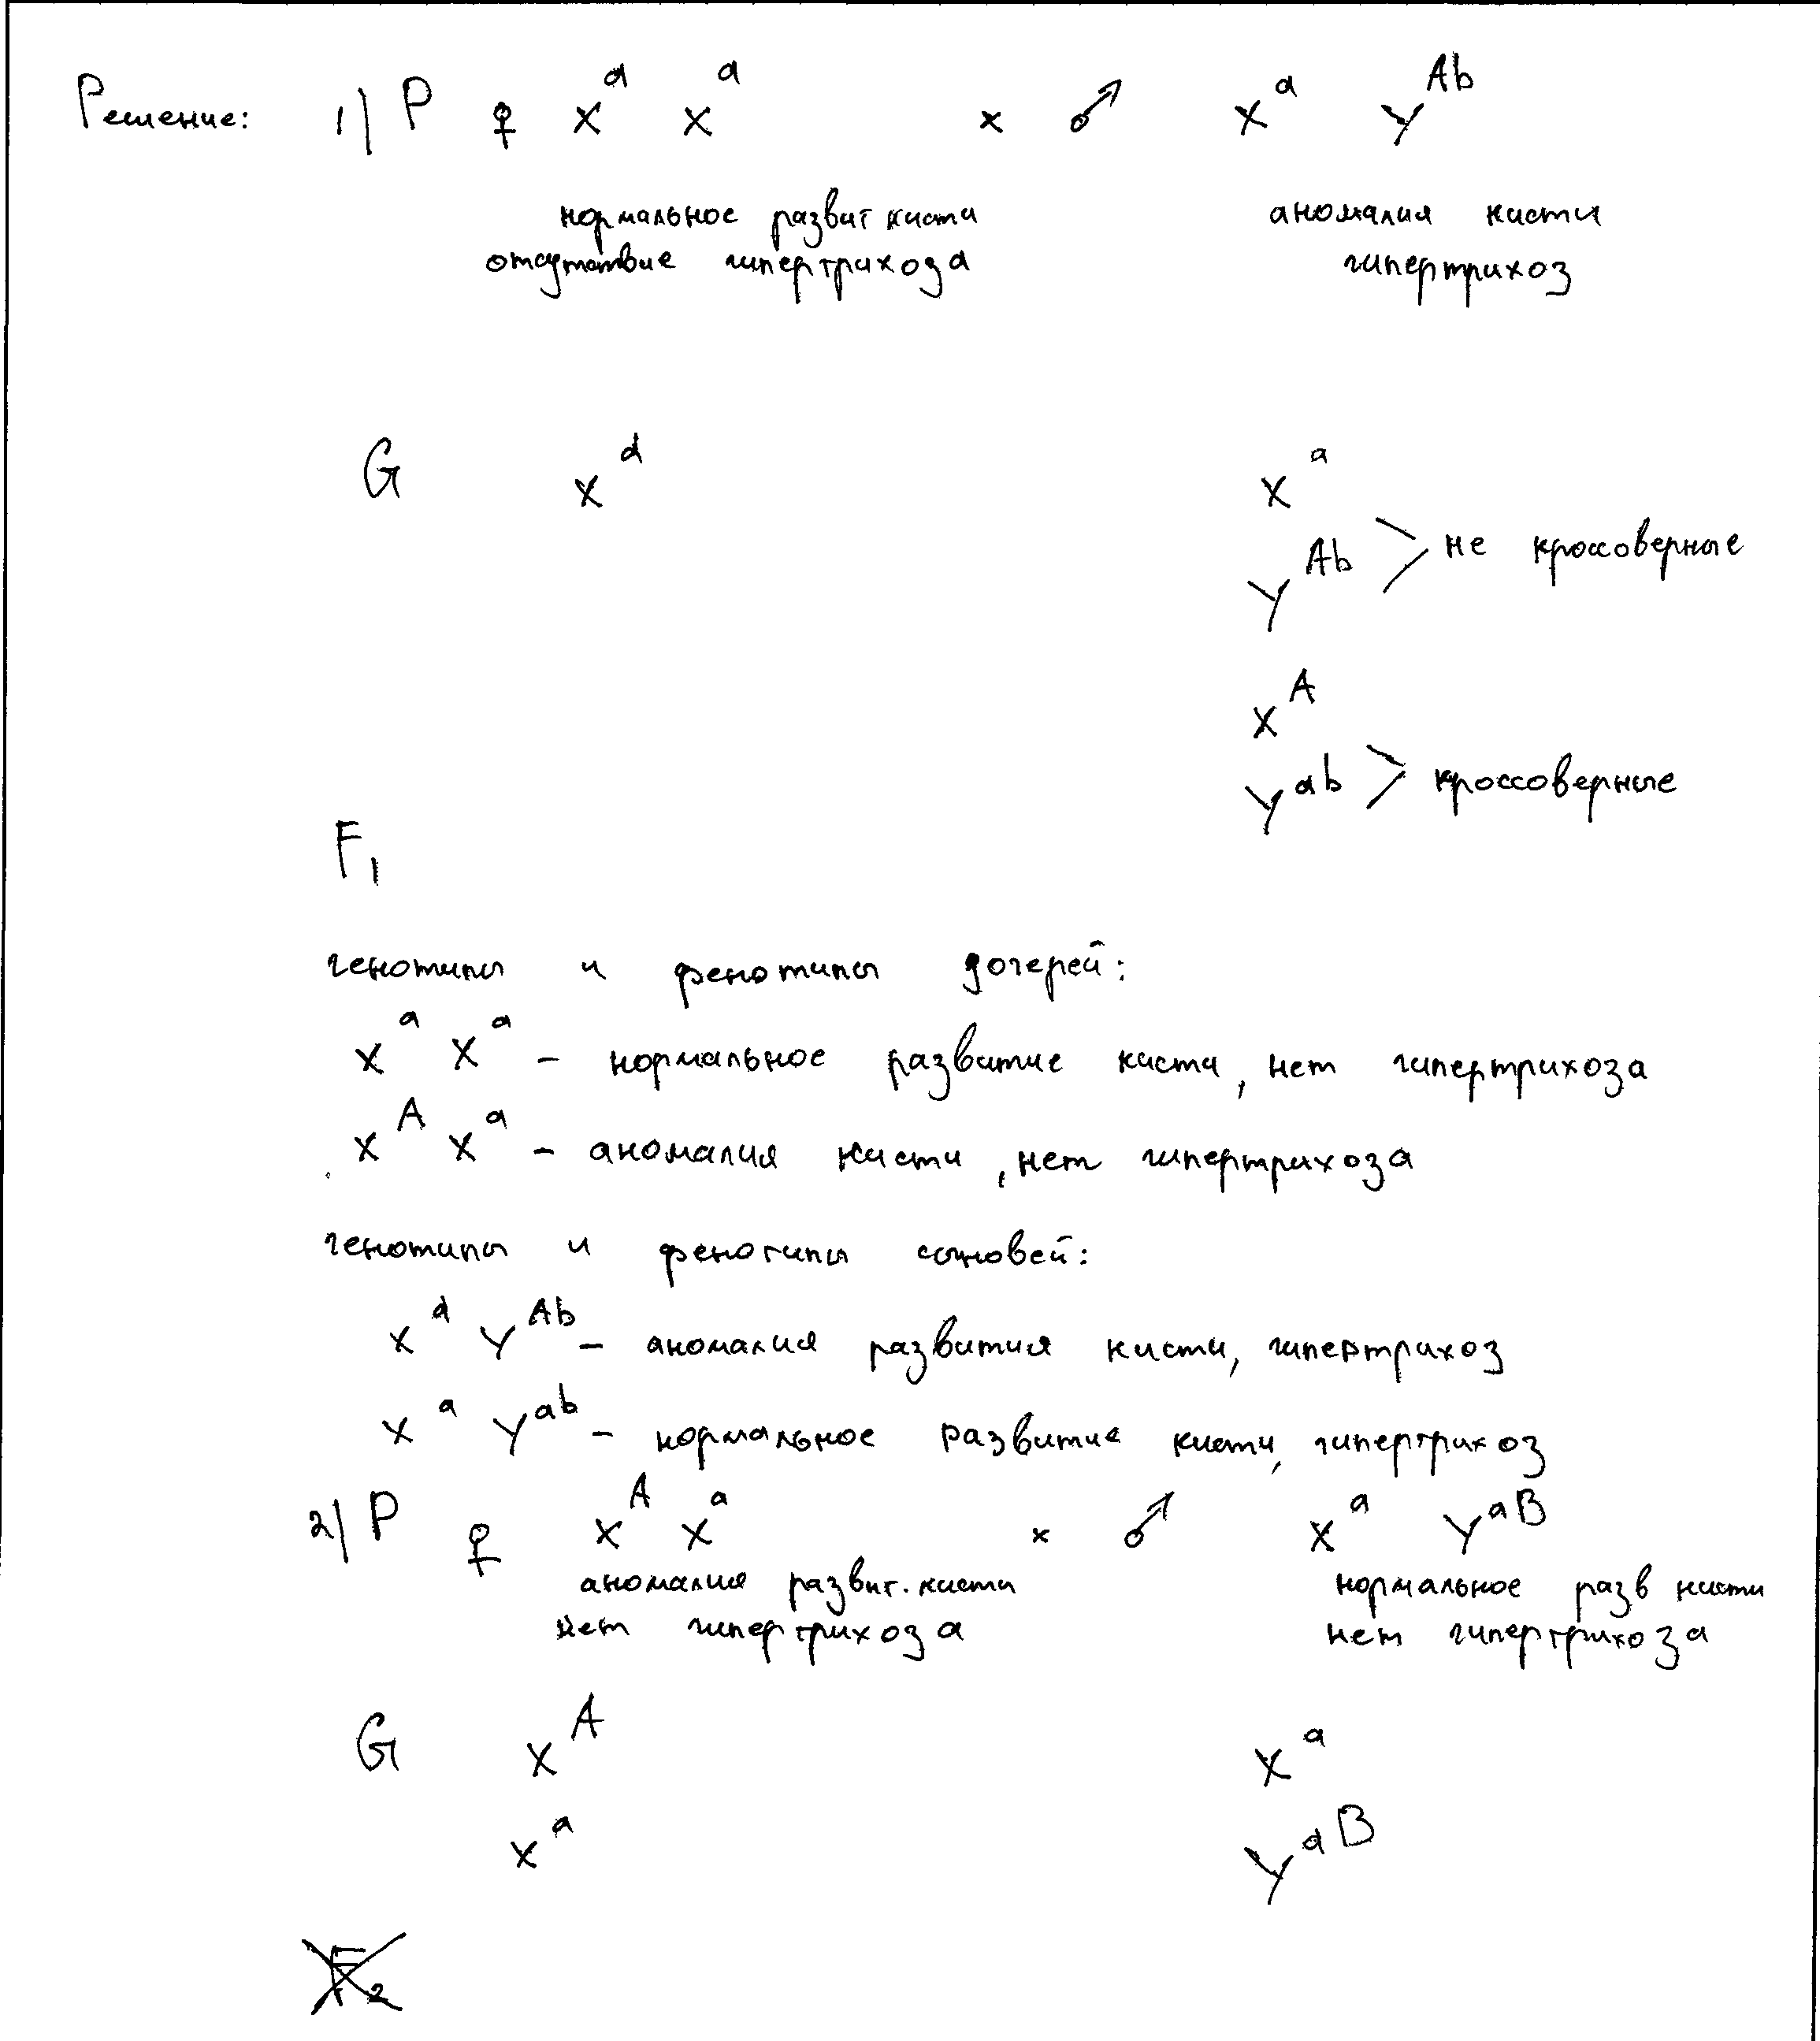 Решение: 1) P ♀ X^a X^a × ♂ X^a Y^Ab
нормальное развит кисти аномалия кисти
отсутствие гипертрихоза гипертрихоз
G X^a X^a
Y^Ab > не кроссоверные
X^A
Y^ab > кроссоверные
F₁
генотипы и фенотипы дочерей:
X^a X^a – нормальное развитие кисти, нет гипертрихоза
X^A X^a – аномалия кисти, нет гипертрихоза
генотипы и фенотипы сыновей:
X^a Y^Ab – аномалия развития кисти, гипертрихоз
X^a Y^ab – нормальное развитие кисти, гипертрихоз
2) P ♀ X^A X^a × ♂ X^a Y^aB
аномалия развит. кисти нормальное разв кисти
нет гипертрихоза нет гипертрихоза
G X^A X^a
X^a Y^aB